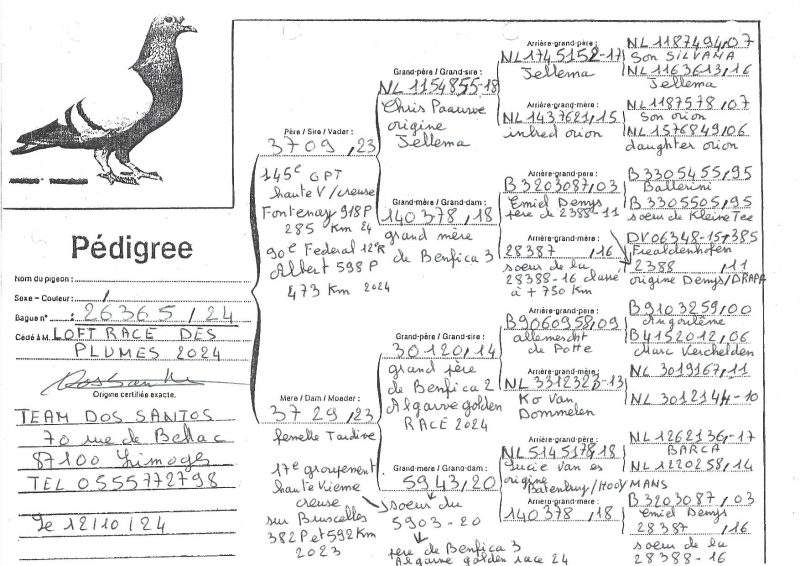 Pédigree
Nom du pigeon :
Sexe - Couleur : /
Bague n° : 26365 / 24
Cédé à M. LOFT RACE DES
PLUMES 2024
Origine certifiée exacte,
TEAM DOS SANTOS
70 rue de Bellac
87100 Limoges
TEL 0555772798
le 12/10/24
Père / Sire / Vader :
3709 ,23
145e GPT
haute V/creuse
Fontenay 918 P
285 Km 24
90e Federal 12eR
Albert 598 P
473 Km 2024
Mère / Dam / Moeder :
3729 ,23
femelle Tardive
17e groupement
haute Vienne
creuse
sur Bruxelles
382P et 592Km
2023
Grand-père / Grand-sire :
NL 1154855-18
Chris Paauwe
origine
Jellema
Grand-mère / Grand-dam :
140378 ,18
grand mère
de Benfica 3
Grand-père / Grand-sire :
30120 ,14
grand père
de Benfica 2
Algarve golden
RACE 2024
Grand-mère / Grand-dam :
5943/20
soeur du
5903-20
père de Benfica 3
Algarve golden race 24
Arrière-grand-père :
NL 1745152-17
Jellema
Arrière-grand-mère :
NL 1437621,15
inbred orion
Arrière-grand-père :
B 3203087,03
Emiel Denys
père de 2388-11
Arrière-grand-mère :
28387 ,16
soeur de la
28388-16 classé
à + 750 Km
Arrière-grand-père :
B9060958,09
allemerscht
de Potte
Arrière-grand-mère :
NL 3312323-13
Ko Van
Dommelen
Arrière-grand-père :
NL 5145178,18
Lucie Van es
origine
Batenburg/HOOYMANS
Arrière-grand-mère :
140378 ,18
NL 1187494,07
Son SILVANA
NL 1163613,16
Jellema
NL 1187578 ,07
Son orion
NL 1576849,06
daughter orion
B 3305455,95
Ballerini
B 3305505,95
soeur de Kleine Tee
DV 06348-15,385
Frealdenhofen
2388 ,11
origine Denys/DRAPA
B9103259,00
Angoulème
B4152012,06
Marc Verchelden
NL 3019167,11
NL 3012144-10
NL 1262136,-17
BARCA
NL 1220258,14
B 3203087 ,03
Emiel Denys
28387 ,16
soeur de la
28388-16